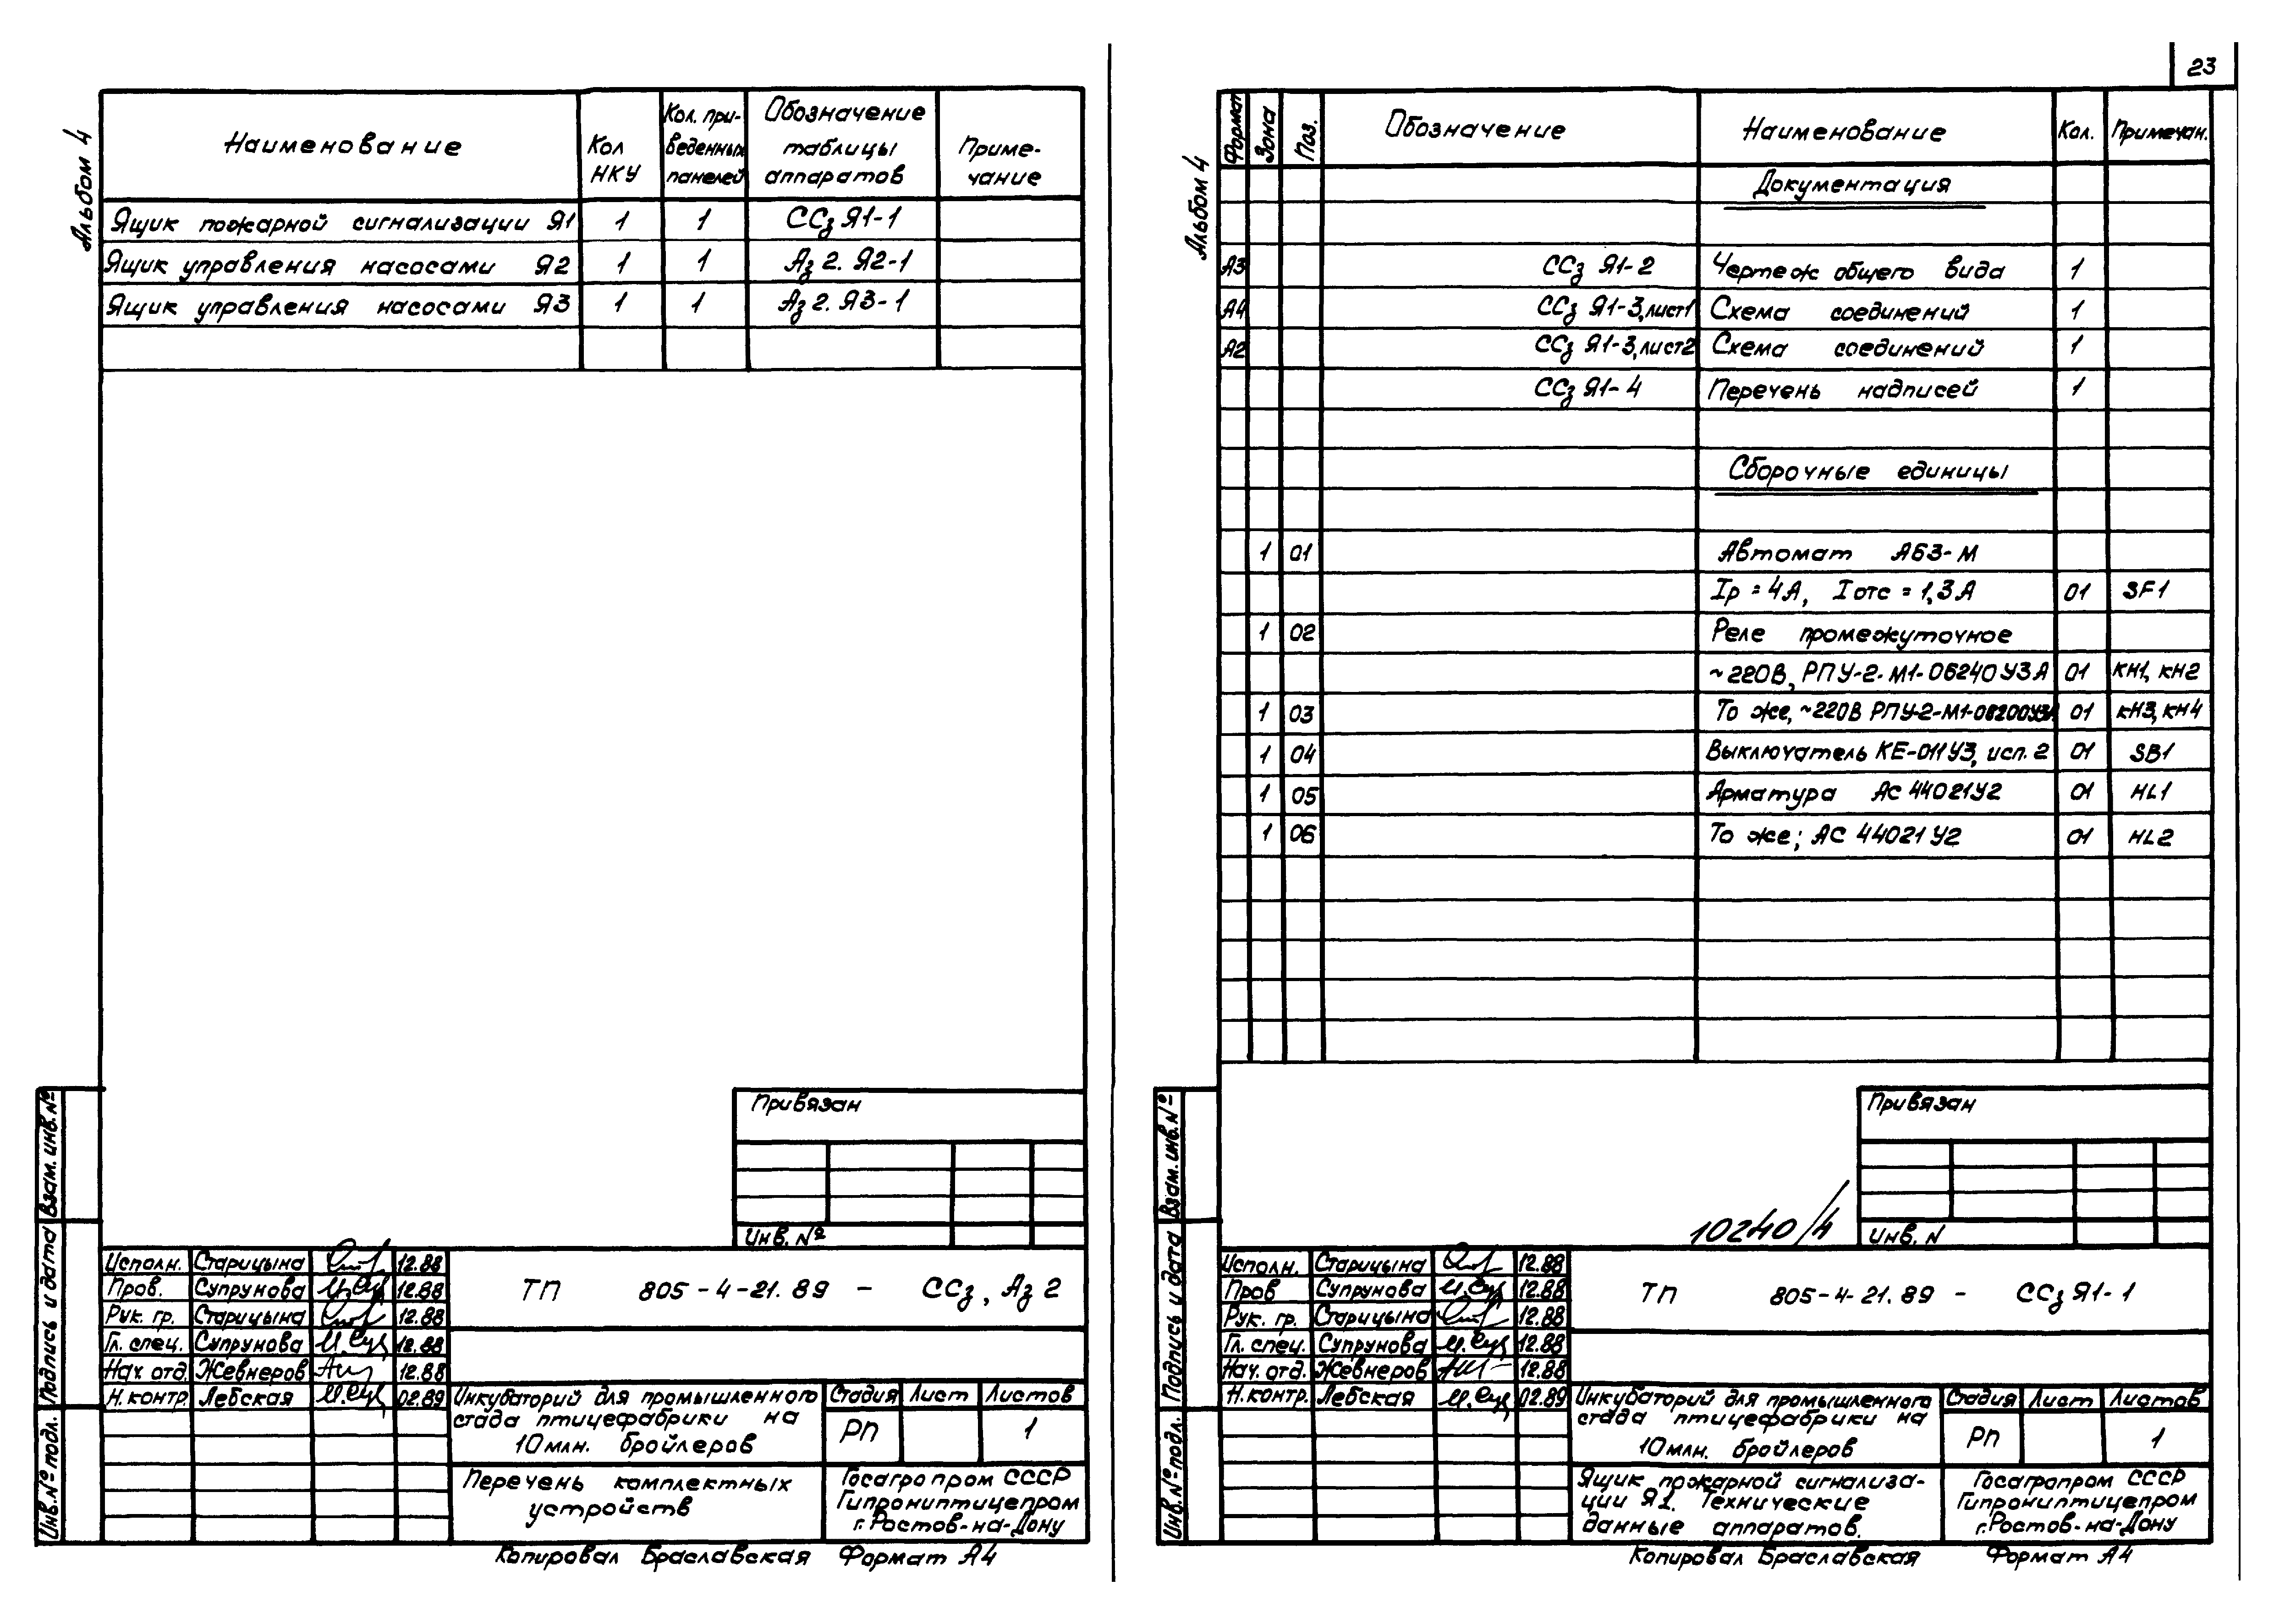 Альбом 4
Наименование | Кол НКУ | Кол. приведенных панелей | Обозначение таблицы аппаратов | Примечание
Ящик пожарной сигнализации Я1 | 1 | 1 | ССз Я1-1
Ящик управления насосами Я2 | 1 | 1 | Аз 2. Я2-1
Ящик управления насосами Я3 | 1 | 1 | Аз 2. Я3-1
Привязан
Инв. №
Взам. инв. №
Подпись и дата
Инв. № подл.
Исполн. Старицына 12.88
Пров. Супрунова 12.88
Рук. гр. Старицына 12.88
Гл. спец. Супрунова 12.88
Нач. отд. Жевнеров 12.88
Н. контр. Лебская 02.89
ТП 805-4-21.89 - ССз, Аз 2
Инкубаторий для промышленного
стада птицефабрики на
10 млн. бройлеров
Стадия Лист Листов
РП 1
Перечень комплектных
устройств
Госагропром СССР
Гипрониптицепром
г. Ростов-на-Дону
Копировал Браславская Формат А4
23
Альбом 4
Формат | Зона | Поз. | Обозначение | Наименование | Кол. | Примечан.
Документация
А3 | ССз Я1-2 | Чертеж общего вида | 1
А4 | ССз Я1-3, лист1 | Схема соединений | 1
А2 | ССз Я1-3, лист2 | Схема соединений | 1
ССз Я1-4 | Перечень надписей | 1
Сборочные единицы
1 | 01 | Автомат А63-М
Iр = 4А, Iотс = 1,3А | 01 | SF1
1 | 02 | Реле промежуточное
~220В, РПУ-2-М1-06240У3А | 01 | КН1, КН2
1 | 03 | То же, ~220В РПУ-2-М1-08200У3А | 01 | КН3, КН4
1 | 04 | Выключатель КЕ-011У3, исп. 2 | 01 | SB1
1 | 05 | Арматура АС 44021У2 | 01 | HL1
1 | 06 | То же; АС 44021У2 | 01 | HL2
Привязан
Инв. N
10240/4
Взам. инв. №
Подпись и дата
Инв. № подл.
Исполн. Старицына 12.88
Пров Супрунова 12.88
Рук. гр. Старицына 12.88
Гл. спец. Супрунова 12.88
Нач. отд. Жевнеров 12.88
Н. контр. Лебская 02.89
ТП 805-4-21.89 - ССз Я1-1
Инкубаторий для промышленного
стада птицефабрики на
10 млн. бройлеров
Стадия Лист Листов
РП 1
Ящик пожарной сигнализа-
ции Я1. Технические
данные аппаратов.
Госагропром СССР
Гипрониптицепром
г. Ростов-на-Дону
Копировал Браславская Формат А4